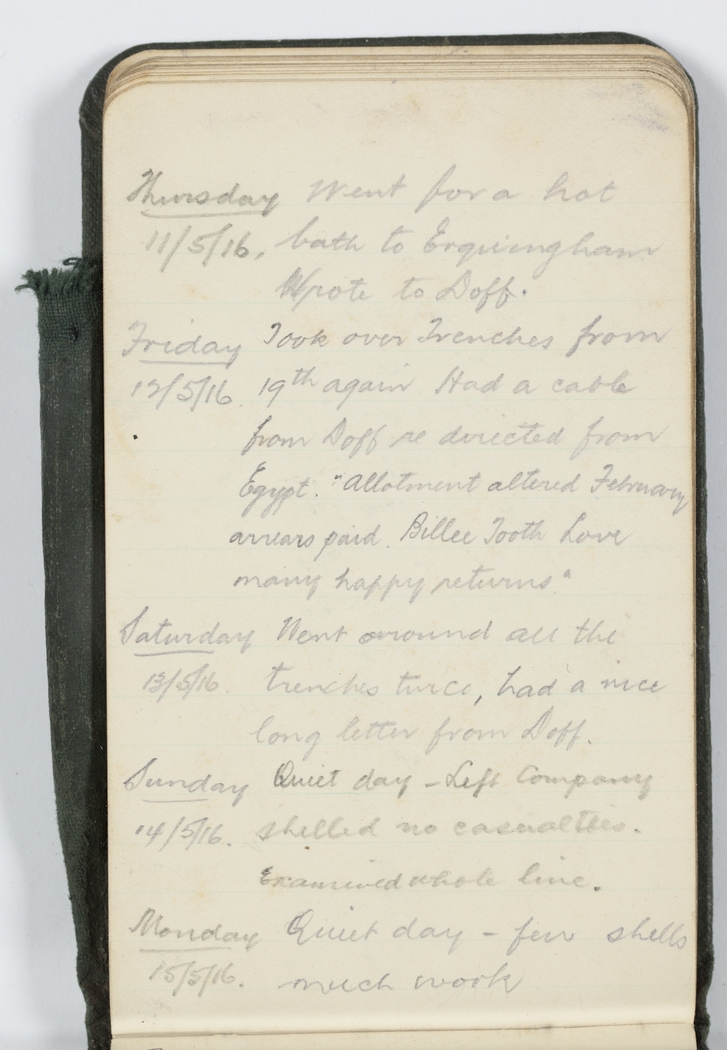 Thursday Went for a hot
11/5/16, bath to Erquingham
Wrote to Doff.
Friday Took over Trenches from
12/5/16 19th again Had a cable
from Doff re directed from
Egypt. "Allotment altered February
arrears paid. Billee Tooth Love
many happy returns"
Saturday Went around all the
13/5/16. trenches twice, had a nice
long letter from Doff.
Sunday Quiet day - Left Company
14/5/16. shelled no casualties.
Examined whole line.
Monday Quiet day - few shells
15/5/16. much work